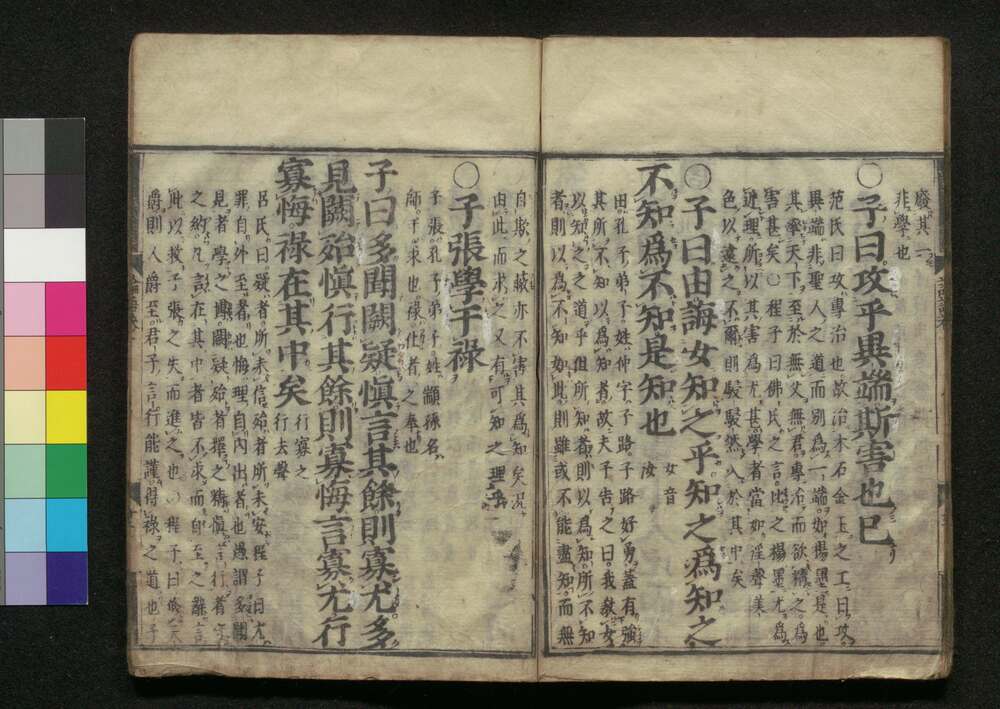 廢其一
非學也
○子曰攻乎異端斯害也已
范氏曰攻專治也故治木石金玉之工曰攻
異端非聖人之道而別爲一端如揚墨是也
其率天下至於無父無君專治而欲精之爲
害甚矣○程子曰佛氏之言比之揚墨尤爲
近理所以其害爲尤甚學者當如淫聲美
色以遠之不爾則駸駸然入於其中矣
○子曰由誨女知之乎知之爲知之
不知爲不知是知也
女音
汝
由孔子弟子姓仲字子路子路好勇蓋有強
其所不知以爲知者故夫子告之曰我敎女
以知之之道乎但所知者則以爲知所不知
者則以爲不知如此則雖或不能盡知而無
自欺之蔽亦不害其爲知矣况
由此而求之又有可知之理乎
○子張學干祿
子張孔子弟子姓顓孫名
師干求也祿仕者之奉也
子曰多聞闕疑愼言其餘則寡尤多
見闕殆愼行其餘則寡悔言寡尤行
寡悔祿在其中矣
行寡之
行去聲
呂氏曰疑者所未信殆者所未安程子曰尤
罪自外至者也悔理自內出者也愚謂多聞
見者學之博闕疑殆者擇之精愼言行者守
之約凡言在其中者皆不求而自至之辭言
此以救子張之失而進之也○程子曰脩天
爵則人爵至君子言行能謹得祿之道也子